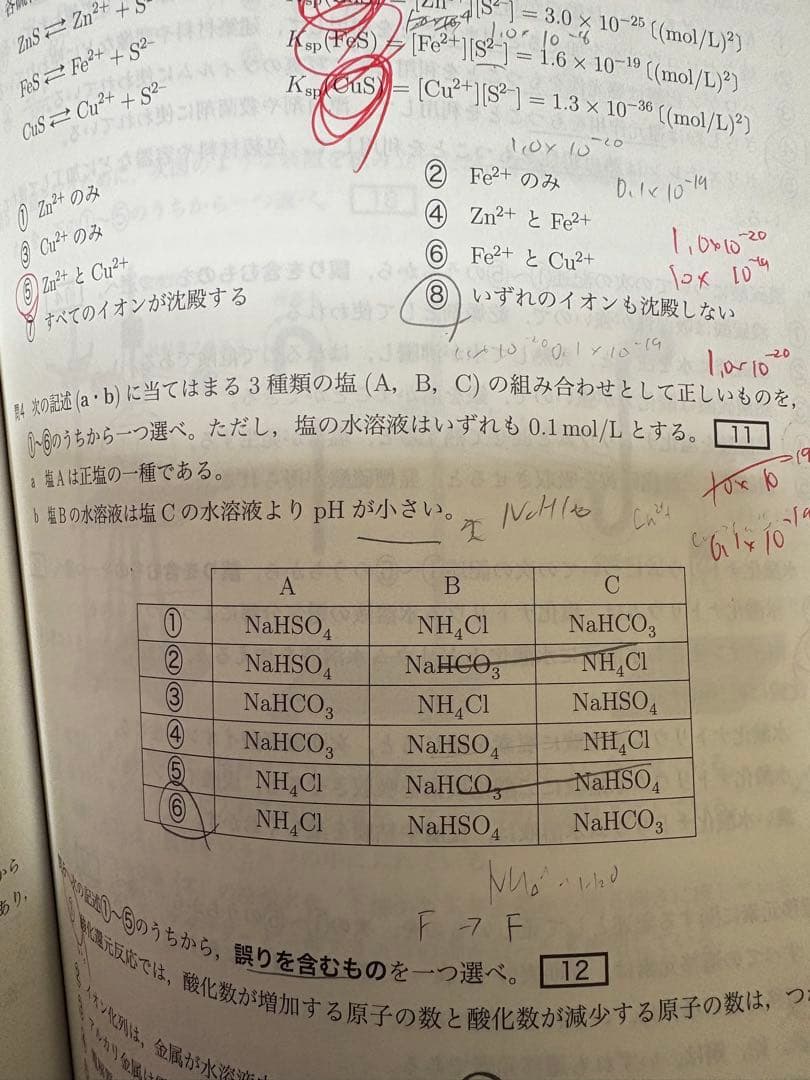 ZnS ⇄ Zn²⁺ + S²⁻
FeS ⇄ Fe²⁺ + S²⁻
CuS ⇄ Cu²⁺ + S²⁻
[S²⁻] = 3.0 × 10⁻²⁵ [(mol/L)²]
1.0 × 10⁻¹⁶
Kₛₚ(FeS) = [Fe²⁺][S²⁻] = 1.6 × 10⁻¹⁹ [(mol/L)²]
Kₛₚ(CuS) = [Cu²⁺][S²⁻] = 1.3 × 10⁻³⁶ [(mol/L)²]
1.0 × 10⁻²⁰
① Zn²⁺ のみ
② Fe²⁺ のみ
0.1 × 10⁻¹⁹
③ Cu²⁺ のみ
④ Zn²⁺ と Fe²⁺
⑤ Zn²⁺ と Cu²⁺
⑥ Fe²⁺ と Cu²⁺
1.0×10⁻²⁰
10× 10⁻¹⁹
⑦ すべてのイオンが沈殿する
⑧ いずれのイオンも沈殿しない
0.1 × 10⁻¹⁹
1.0 10⁻²⁰
問4 次の記述(a・b)に当てはまる3種類の塩(A, B, C)の組み合わせとして正しいものを,
①~⑥のうちから一つ選べ。ただし,塩の水溶液はいずれも0.1 mol/Lとする。 11
a 塩Aは正塩の一種である。
10× 10⁻¹⁹
b 塩Bの水溶液は塩Cの水溶液よりpHが小さい。
Cu²⁺
0.1×10⁻¹⁹
A B C
① NaHSO₄ NH₄Cl NaHCO₃
② NaHSO₄ NaHCO₃ NH₄Cl
③ NaHCO₃ NH₄Cl NaHSO₄
④ NaHCO₃ NaHSO₄ NH₄Cl
⑤ NH₄Cl NaHCO₃ NaHSO₄
⑥ NH₄Cl NaHSO₄ NaHCO₃
F → F
次の記述①~⑤のうちから,誤りを含むものを一つ選べ。 12
酸化還元反応では,酸化数が増加する原子の数と酸化数が減少する原子の数は,
イオン化列は,金属が水溶液
アルカリ金属は